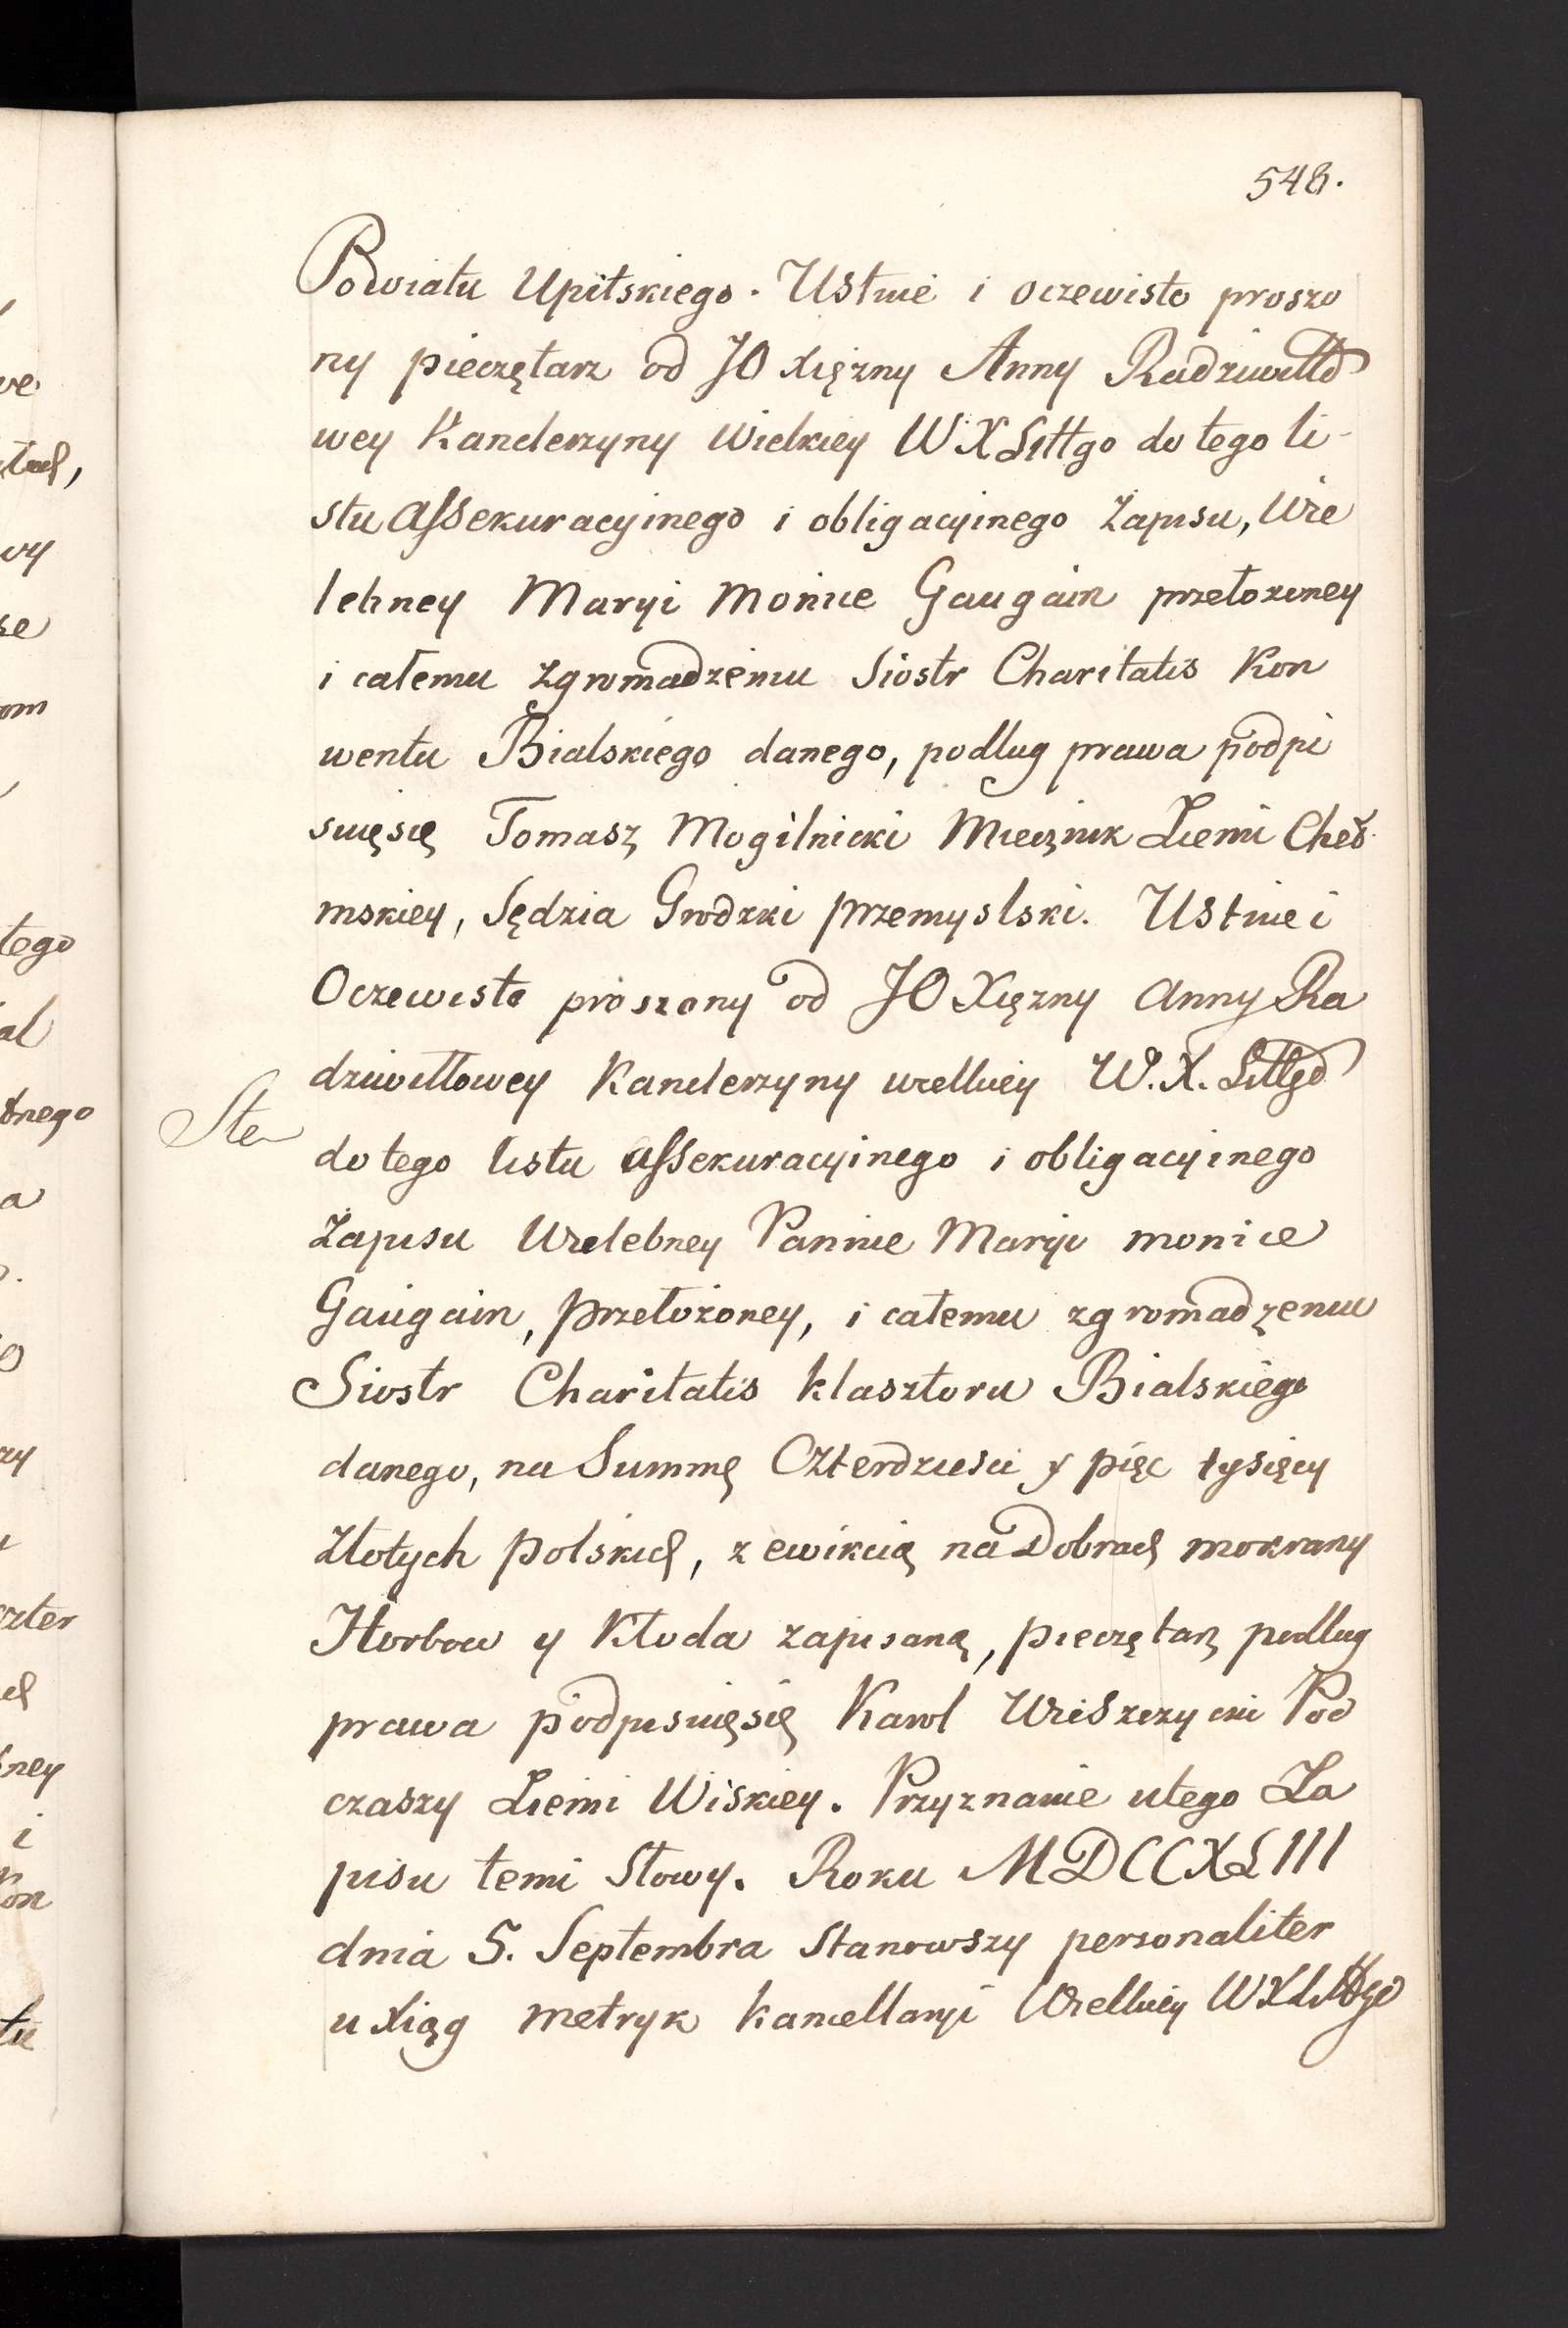 548.
Powiatu Upitskiego. Ustnie i oczewisto proszo
ny pieczętarz od JO Xiężny Anny Radziwiłło
wey Kanclerzyny Wielkiey W X Littgo do tego li-
stu Assekuracyinego i obligacyinego Zapisu, Wie
lebney Maryi Monice Gaugain przełożoney
i całemu Zgromadzeniu Siostr Charitatis Kon
wentu Bialskiego danego, podlug prawa podpi
suięsię Tomasz Mogilnicki Miecznik Ziemi Cheł-
mskiey, Sędzia Grodzki przemyslski. Ustnie i
Oczewisto proszony od JO Xiężny Anny Ra
dziwiłłowey Kanclerzyny wielkiey W. X. Littgo
do tego listu assekuracyinego i obligacyinego
Zapisu Wielebney Pannie Maryi monice
Gaugain, przełożoney, i całemu zgromadzeniu
Siostr Charitatis klasztoru Bialskiego
danego, na Summę Czterdziesci y pięc tysięcy
Złotych polskich, z ewikcią na Dobrach mokrany
Horbow y Kłoda zapisaną, pieczętarz podlug
prawa podpisuięsię Karol Wieszczycki Pod
czaszy Ziemi Wiskiey. Przyznanie utego Za
pisu temi Słowy. Roku MDCCXLIII
dnia 5. Septembra Stanowszy personaliter
u Xiąg metryk kancellaryi Wielkiey W X Littgo
Ste